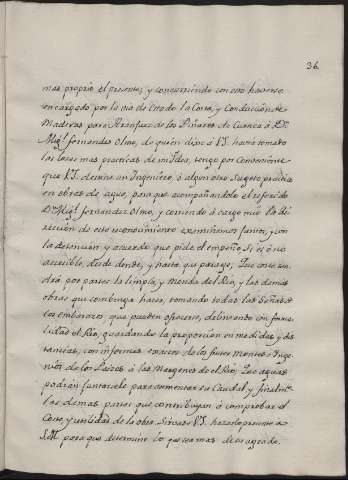 36
mas proprio el presente, y concurriendo con esto haverse
encargado por la via de de la Corte, y Conducción de
Maderas para Aranjuez de los Pinares de Cuenca à Dn.
Migl. fernandez Olmo, de quien dixe à V.I. havia tomado
las luces mas practicas de mi Idea, tengo por Conveniente
que V.I. destine un Ingeniero, ò algun otro Sugeto practico
en obras de agua, para que acompañandole el referido
Dn. Migl. fernandez Olmo, y corriendo à cargo mio la di-
rección de este reconocimiento examinemos juntos, y con
la detencion, y acuerdo que pide el empeño, si es ò no
accesible, desde donde, y hasta que parage; Que coste ten-
drà por partes la limpia, y Monda del Rio, y las demas
obras que combenga hacer, tomando todas las Señas de
los embarazos que pueden ofrecerse, delineando con forma-
lidad el Rio, guardando la proporcion en medidas, y dis-
tancias, con informe de los
de los Paises à las Margenes de el Rio; Que aguas
podràn juntarsele para aumentar su Caudal, y finalmte.
las demas partes que contribuyan à comprobar el
Coste, y utilidad de la obra. Sirvase V.I. hacerlo presente a
S.M. para que determine lo que sea mas de su agrado.